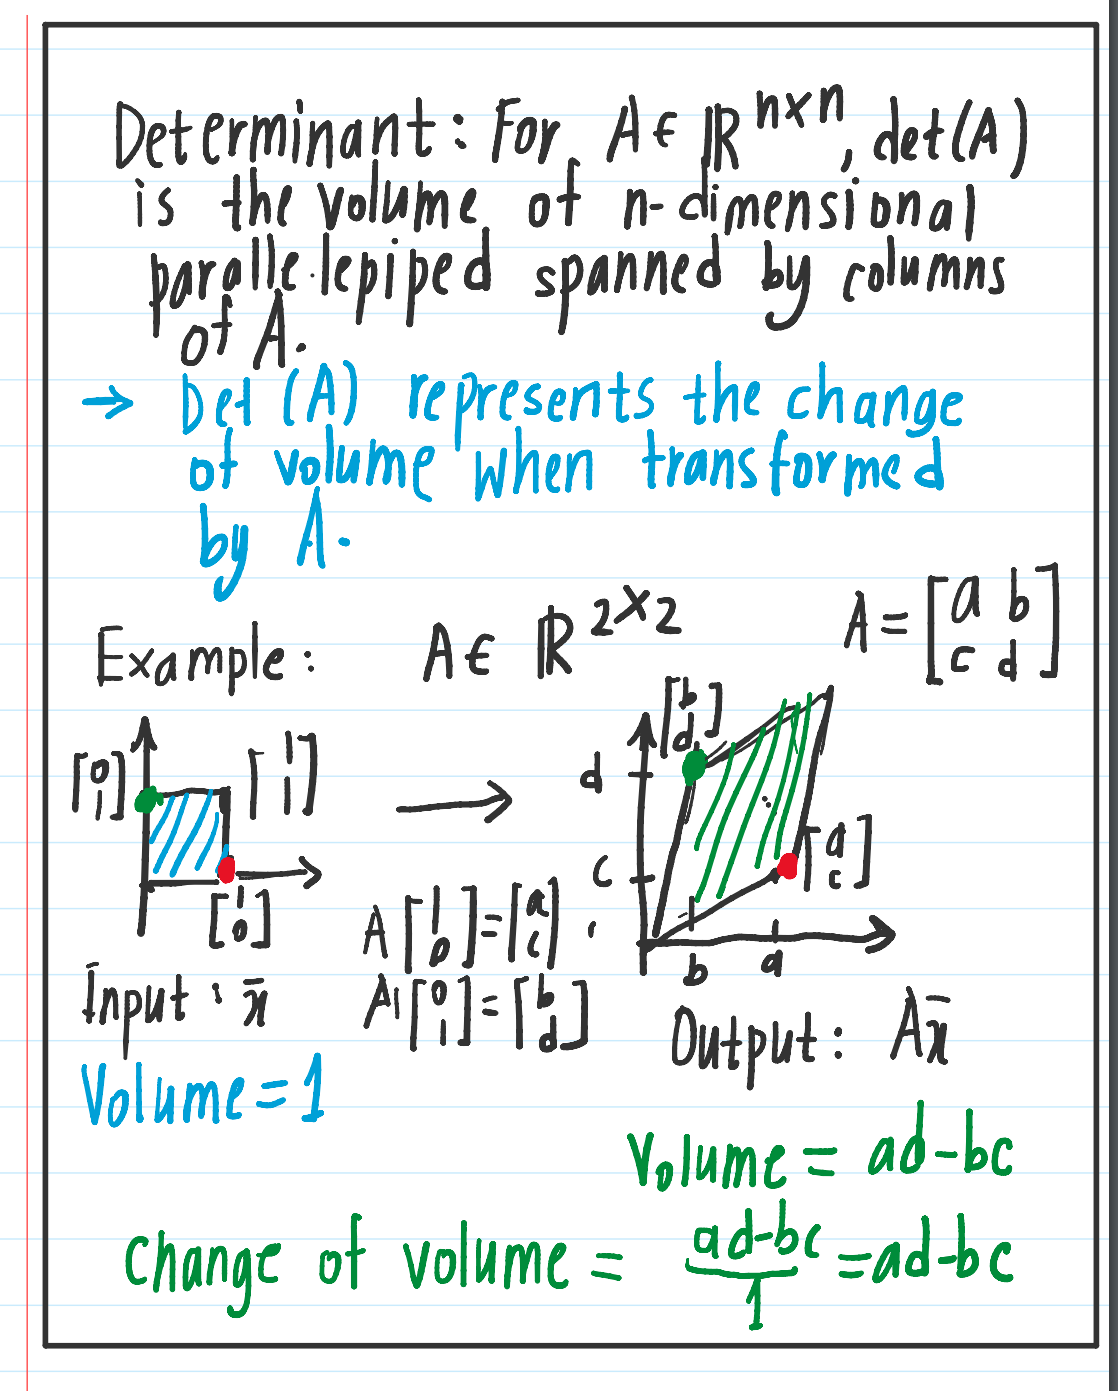 Determinant: For A ∈ ℝ^{n×n}, det(A)
is the volume of n-dimensional
parallelepiped spanned by columns
of A.
→ Det (A) represents the change
of volume when transformed
by A.
Example: A ∈ ℝ^{2×2} A = [a b; c d]
[0; 1] [1; 1] → d [b; d]
[1; 0] c [a; c]
A[1; 0] = [a; c], b a
Input: x̄ A[0; 1] = [b; d] Output: Ax̄
Volume = 1
Volume = ad-bc
Change of volume = ad-bc/1 = ad-bc